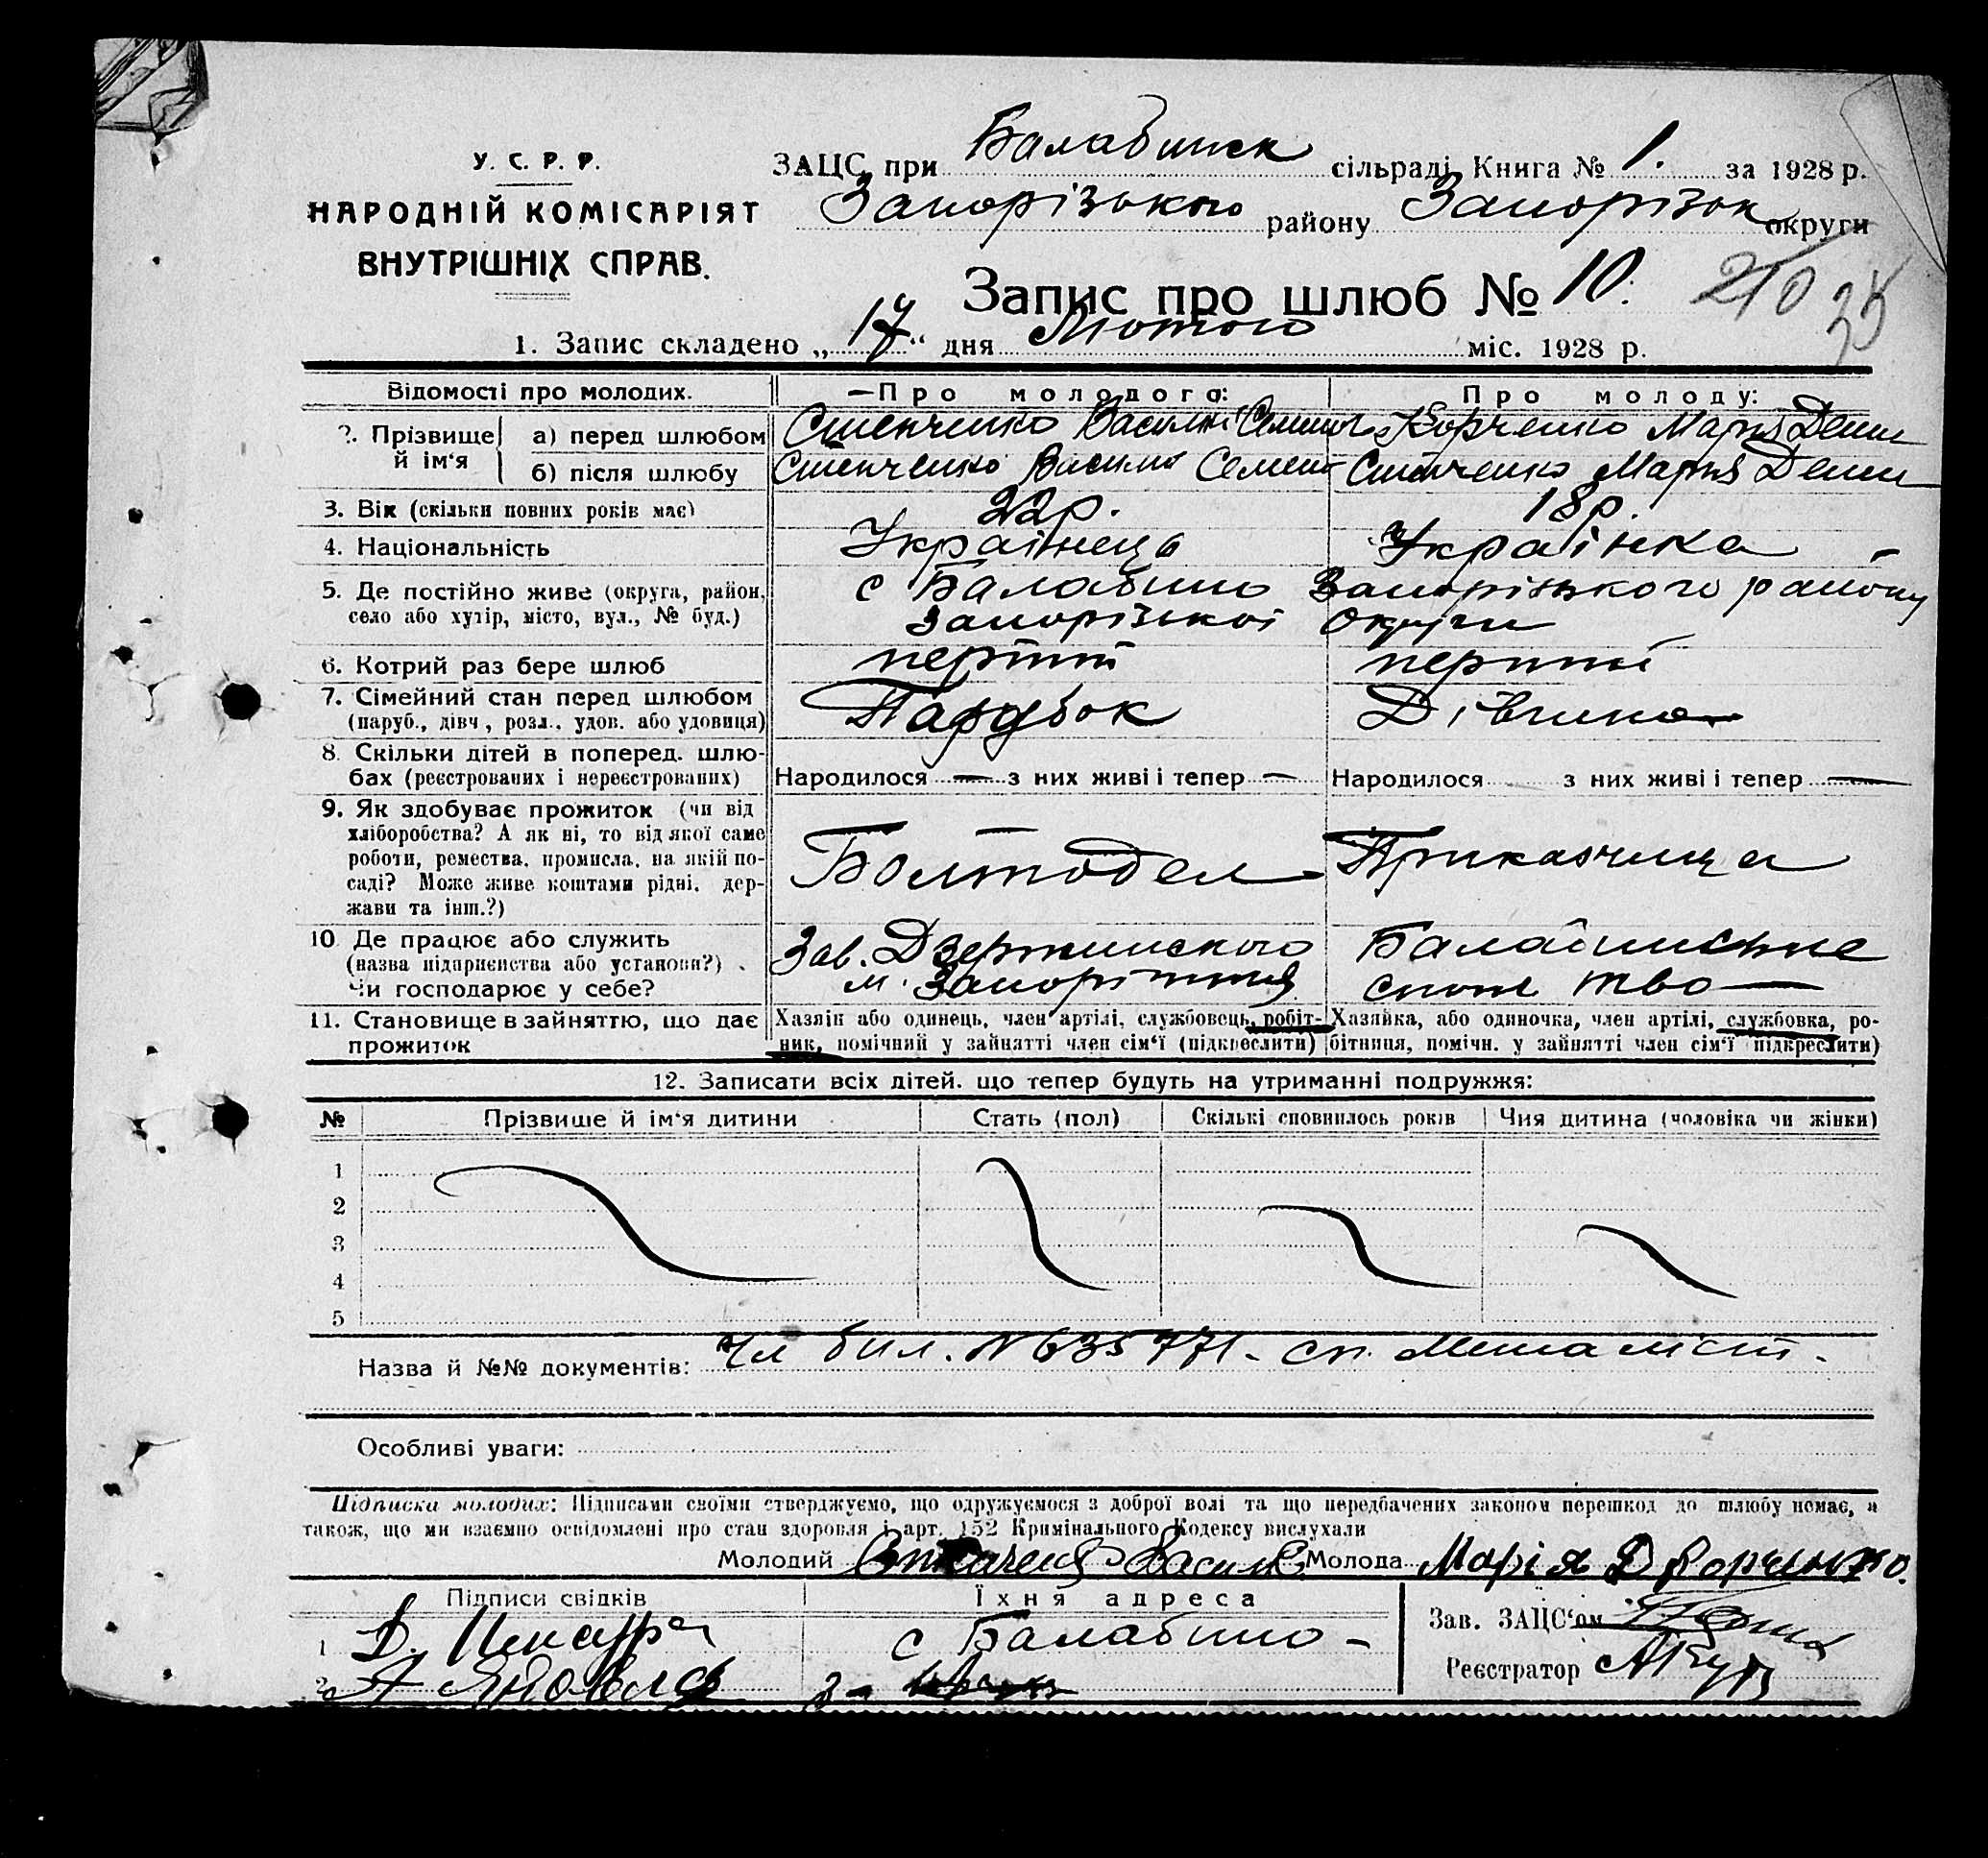 У. С. Р. Р.
НАРОДНІЙ КОМІСАРІЯТ
ВНУТРІШНІХ СПРАВ.
ЗАЦС при Балабинск сільраді Книга № 1. за 1928 р.
Запорізького району Запорізьк округи
Запис про шлюб № 10. 210 35
1. Запис складено „17“ дня Лютого міс. 1928 р.
Відомості про молодих. Про молодого: Про молоду:
2. Прізвище й ім'я
а) перед шлюбом Василий Марія Дени
б) після шлюбу Василий Семен Марія Дени
3. Вік (скільки повних років має) 22 р. 18 р.
4. Національність Українець Українка
5. Де постійно живе (округа, район, с Балабино Запорізького району
село або хутір, місто, вул., № буд.) Запорізької Округи
6. Котрий раз бере шлюб перший перший
7. Сімейний стан перед шлюбом Парубок Дівчина
(паруб., дівч., розл., удов. або удовиця)
8. Скільки дітей в поперед. шлю-
бах (реєстрованих і нереєстрованих) Народилося — з них живі і тепер — Народилося з них живі і тепер —
9. Як здобуває прожиток (чи від
хліборобства? А як ні, то від якої саме
роботи, ремества, промисла, на якій по- Болтодел Приказчица
саді? Може живе коштами рідні, дер-
жави та інш.?)
10. Де працює або служить Зав. Дзержинского Балабинське
(назва підприємства або установи?) м. Запоріжжя спож тво —
Чи господарює у себе?
11. Становище в зайняттю, що дає Хазяїн або одинець, член артілі, службовець, робіт- Хазяйка, або одиночка, член артілі, службовка, ро-
прожиток ник, помічний у зайнятті член сім'ї (підкреслити) бітниця, помічн. у зайнятті член сім'ї підкреслити)
12. Записати всіх дітей, що тепер будуть на утриманні подружжя:
№ Прізвище й ім'я дитини Стать (пол) Скількі сповнилось років Чия дитина (чоловіка чи жінки)
1
2
3
4
5
Назва й №№ документів: Чл бил. № 635771 - сп. Металіст.
Особливі уваги:
Підписка молодих: Підписами своїми стверджуємо, що одружуємося з доброї волі та що передбачених законом перешкод до шлюбу немає, а
також, що ми взаємно освідомлені про стан здоровля і арт. 152 Кримінального Кодексу вислухали
Молодий Васил Молода Марія Д
Підписи свідків Їхня адреса
1 Д. с Балабино -
2 А Яковлев
Зав. ЗАЦС'ом
Реєстратор